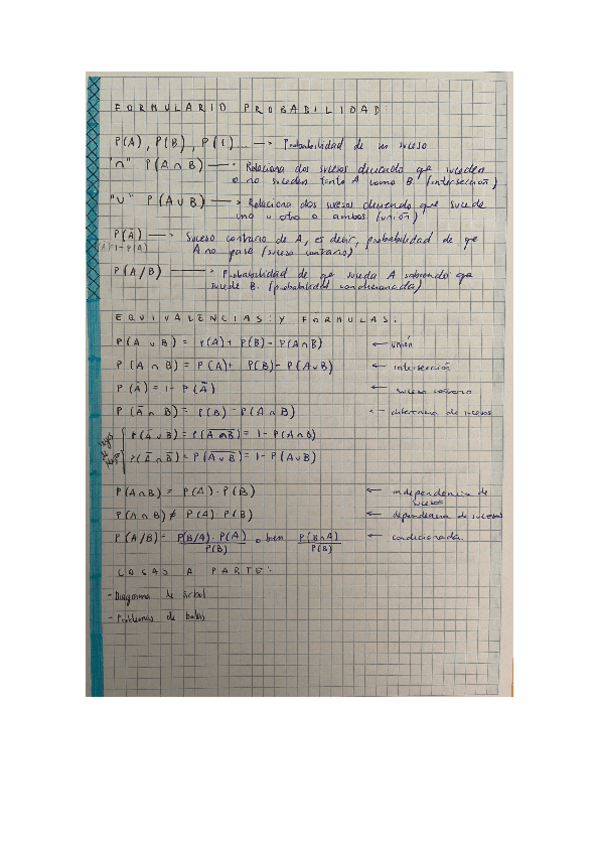 FORMULARIO PROBABILIDAD:
P(A), P(B), P(1)... —> Probabilidad de un suceso
"∩" P(A∩B) —> Relaciona dos sucesos diciendo que suceden
o no suceden tanto A como B. (intersección)
"∪" P(A∪B) —> Relaciona dos sucesos diciendo que sucede
uno u otro o ambos (unión)
P(Ā) —> Suceso contrario de A, es decir, probabilidad de que
1-P(A) A no pase (suceso contrario)
P(A/B) —> Probabilidad de que suceda A sabiendo que
sucede B. (probabilidad condicionada)
EQUIVALENCIAS Y FORMULAS:
P(A∪B) = P(A) + P(B) - P(A∩B) ← unión
P(A∩B) = P(A) + P(B) - P(A∪B) ← intersección
P(A) = 1 - P(Ā) ← suceso contrario
P(Ā∩B) = P(B) - P(A∩B) ← diferencia de sucesos
leyes de
P(Ā∪B̄) = P(A̅∩̅B̅) = 1 - P(A∩B)
P(Ā∩B̄) = P(A̅∪̅B̅) = 1 - P(A∪B)
P(A∩B) = P(A) · P(B) ← independencia de
sucesos
P(A∩B) ≠ P(A) · P(B) ← dependencia de sucesos
P(A/B) = P(B/A) · P(A) / P(B) o bien P(B∩A) / P(B) ← condicionada.
COSAS A PARTE:
- Diagrama de árbol
- Problemas de bolas